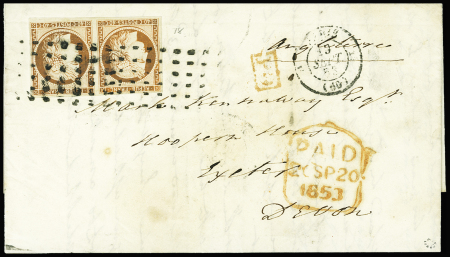 Angleterre
PD
Mark Kennaway Esqre
Hoopern House
Exeter
Devon
PAID
20 SP 20
1853